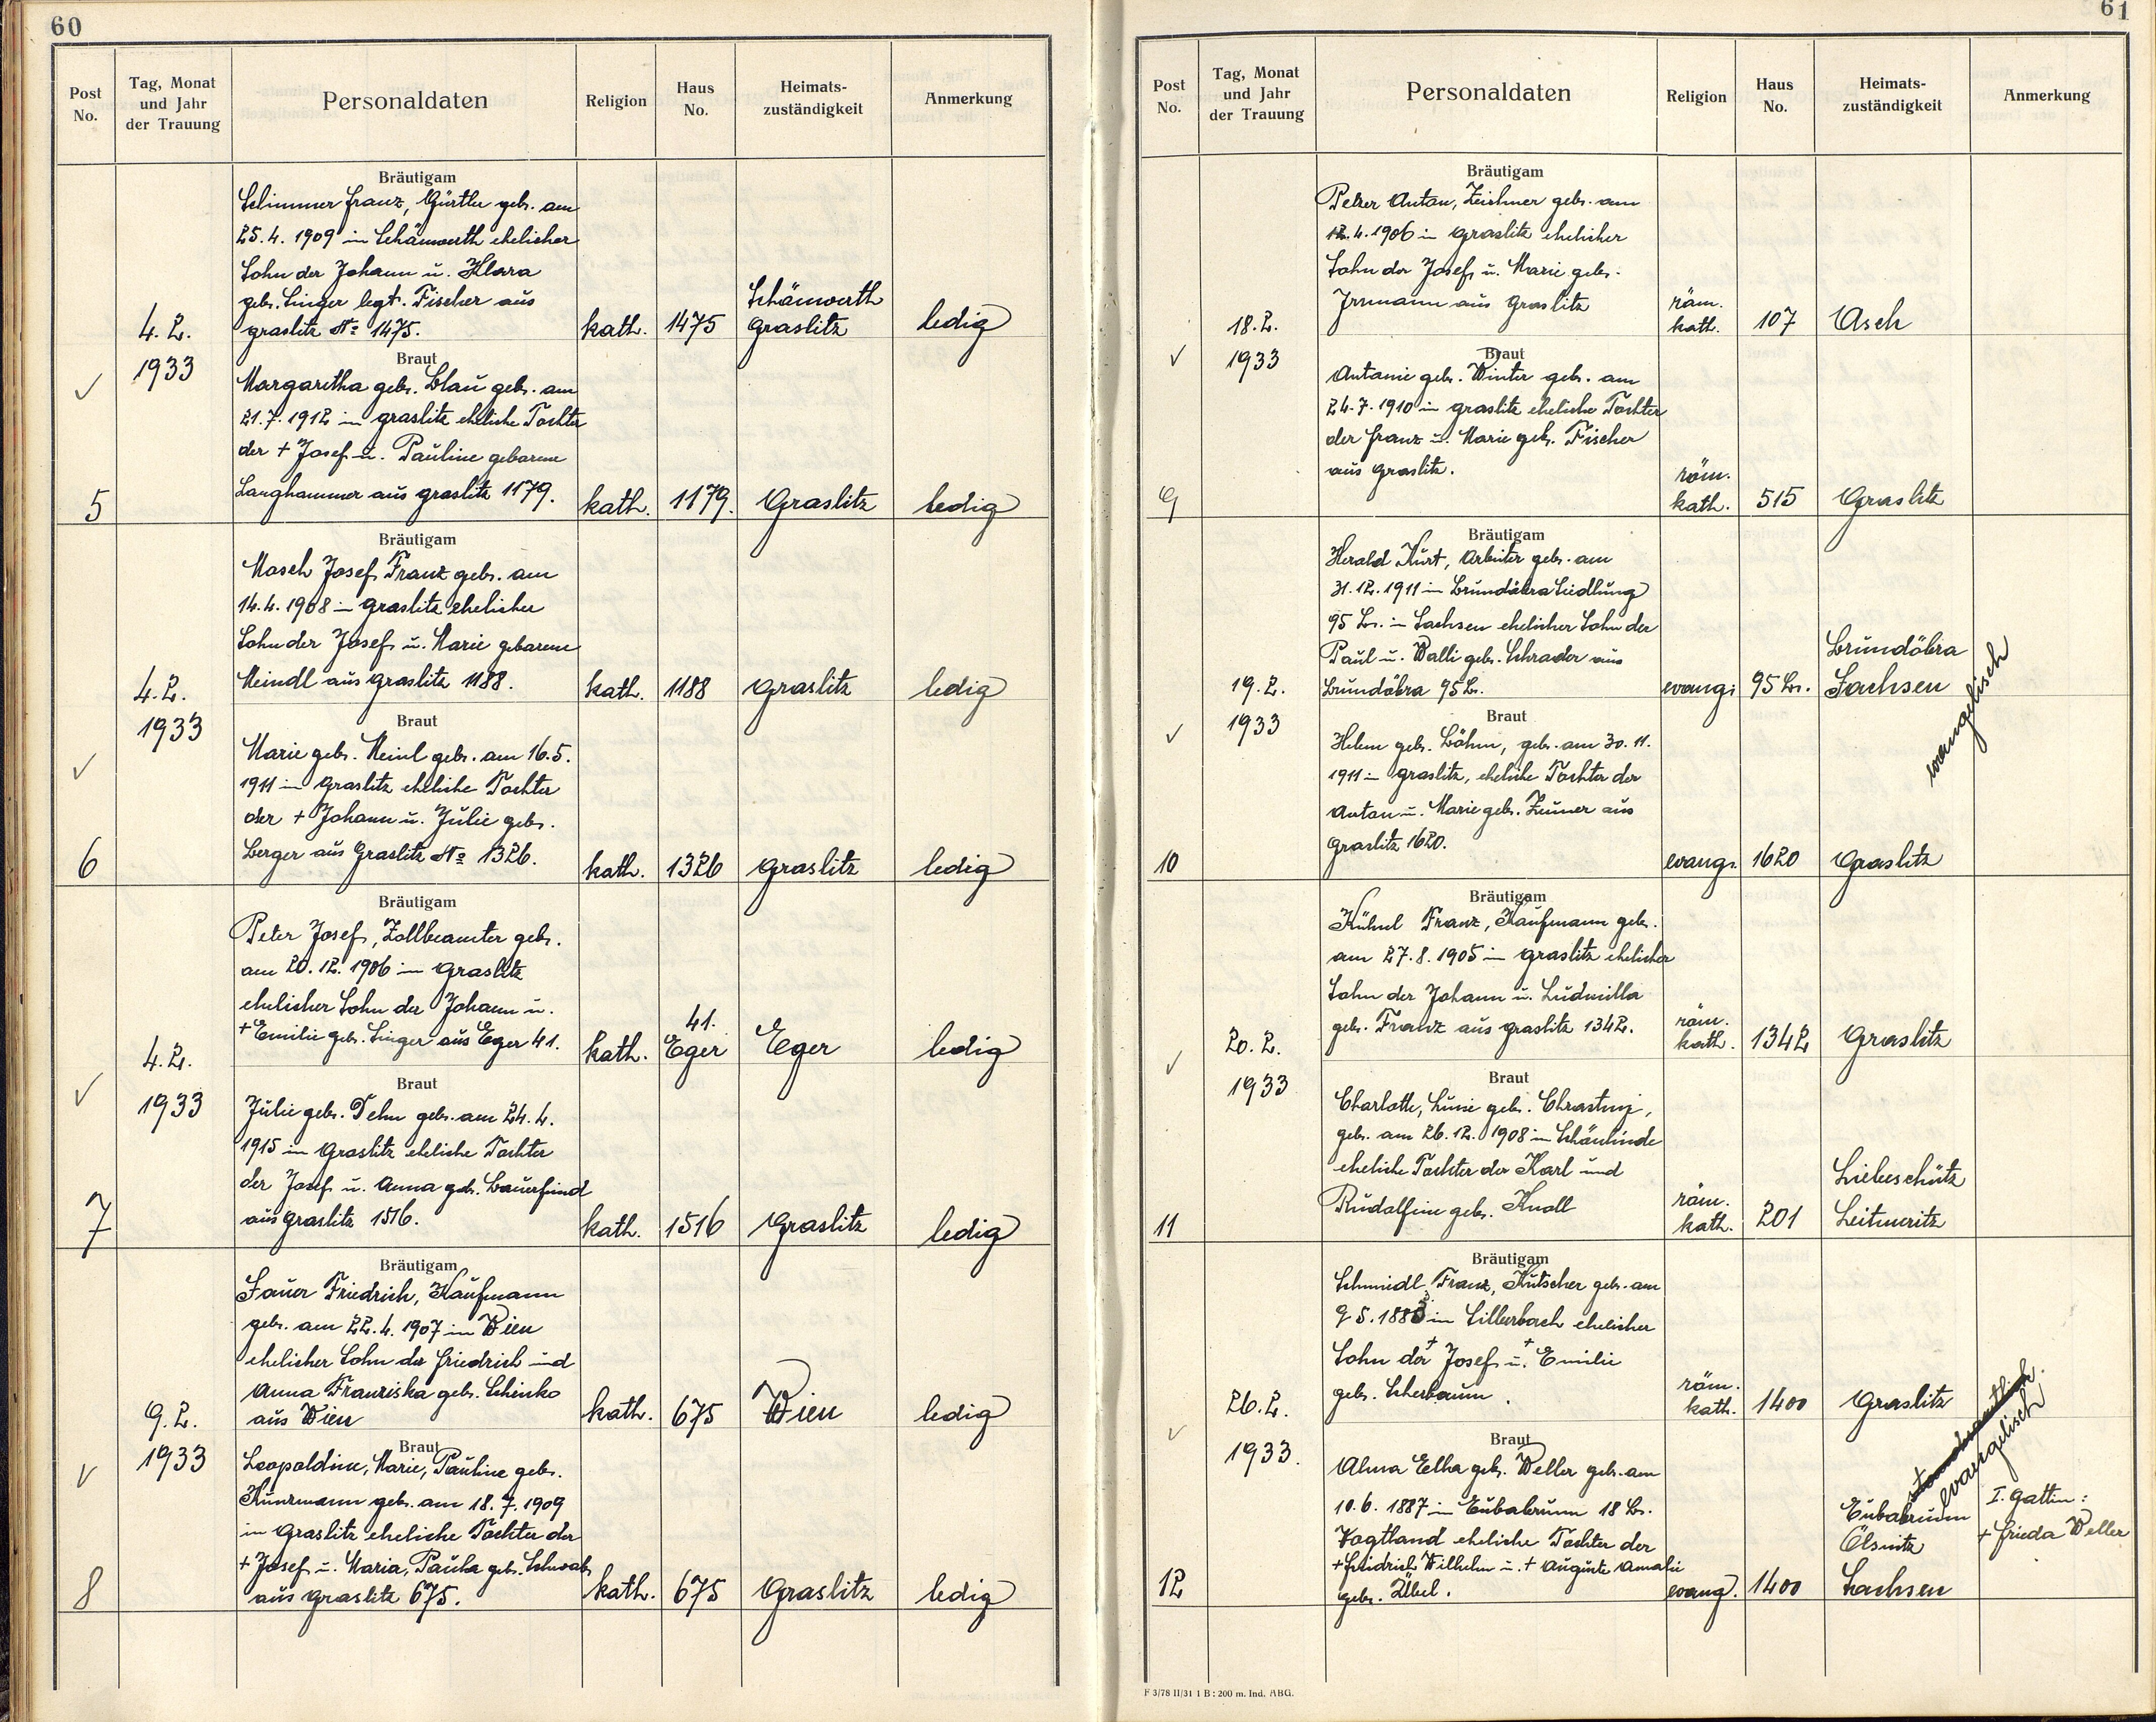 60
Post No.
Tag, Monat und Jahr der Trauung
Personaldaten
Religion
Haus No.
Heimats-zuständigkeit
Anmerkung
Bräutigam
Schimmer Franz, Gürtler geb. am
25.4. 1909 in Schönwerth ehelicher
Sohn der Johann u. Klara
geb. Singer legt. Fischer aus
Schönwerth
4.2. graslitz No 1475. kath. 1475 Graslitz ledig
1933
Braut
Margaretha geb. Blau geb. am
21.7. 1912 in graslitz eheliche Tochter
der + Josef u. Pauline geborene
5 Langhammer aus graslitz 1179. kath. 1179. Graslitz ledig
Bräutigam
Mosch Josef Franz geb. am
14.4. 1908 in graslitz ehelicher
Sohn der Josef u. Marie geborene
4.2. Meindl aus graslitz 1188. kath. 1188 graslitz ledig
1933
Braut
Marie geb. Meinl geb. am 16.5.
1911 in graslitz eheliche Tochter
der + Johann u. Julie geb.
6 Berger aus Graslitz No 1326. kath. 1326 graslitz ledig
Bräutigam
Peter Josef, Zollbeamter geb.
am 20.12. 1906 in graslitz
ehelicher Sohn der Johann u.
41.
4.2. + Emilie geb. Singer aus Eger 41. kath. Eger Eger ledig
1933
Braut
Julie geb. Dehn geb. am 24.4.
1915 in Graslitz eheliche Tochter
der Josef u. Anna geb. Bauerfeind
7 aus graslitz 1516. kath. 1516 Graslitz ledig
Bräutigam
Sauer Friedrich, Kaufmann
geb. am 22.4. 1907 in Wien
ehelicher Sohn der Friedrich und
Anna Franziska geb. Schinko
9.2. aus Wien kath. 675 Wien ledig
1933
Braut
Leopoldine, Marie, Pauline geb.
Kunzmann geb. am 18.7. 1909
in Graslitz eheliche Tochter der
+ Josef u. Maria, Paula geb. Schwab
8 aus graslitz 675. kath. 675 Graslitz ledig
61
Post No.
Tag, Monat und Jahr der Trauung
Personaldaten
Religion
Haus No.
Heimats-zuständigkeit
Anmerkung
Bräutigam
Pelzer Anton, Zeichner geb. am
12.4. 1906 in graslitz ehelicher
Sohn der Josef u. Marie geb.
Irrmann aus Graslitz
18.2. röm. kath. 107 Asch
1933
Braut
Antonie geb. Winter geb. am
24.7. 1910 in graslitz eheliche Tochter
der Franz u. Marie geb. Fischer
aus Graslitz.
9 röm. kath. 515 Graslitz
Bräutigam
Herold Kurt, Arbeiter geb. am
31.12. 1911 in Brundöbra Siedlung
95 Br. in Sachsen ehelicher Sohn der
Paul u. Walli geb. Schrader aus
Brundöbra
19.2. Brundöbra 95 Br. evang. 95 Br. Sachsen
evangelisch
1933
Braut
Helene geb. Böhm, geb. am 30.11.
1911 in graslitz, eheliche Tochter der
Anton u. Marie geb. Zeuner aus
graslitz 1620.
10 evang. 1620 Graslitz
Bräutigam
Kühnl Franz, Kaufmann geb.
am 27.8. 1905 in graslitz ehelicher
Sohn der Johann u. Ludmilla
geb. Franz aus graslitz 1342.
20.2. röm. kath. 1342 Graslitz
1933
Braut
Charlotte, Luise geb. Chrastny,
geb. am 26.12. 1908 in Schönlinde
eheliche Tochter der Karl und
Liebeschütz
Rudolfine geb. Knoll
11 röm. kath. 201 Leitmeritz
Bräutigam
Schmiedl Franz, Kutscher geb. am
9 5. 1883 in Silberbach ehelicher
Sohn der + Josef u. + Emilie
geb. Scherbaum.
26.2. röm. kath. 1400 Graslitz
1933.
evangelisch
Braut
Alma Elha geb. Weller geb. am
10.6. 1887 in Eubabrunn 18 Br. Eubabrunn I. Gattin:
Vogtland eheliche Tochter der Ölsnitz + Frieda Weller
+ Friedrich Wilhelm u. + Auguste Amalie
12 geb. Übel. evang. 1400 Sachsen
F 3/78 II/31 1 B: 200 m. Ind. ABG.